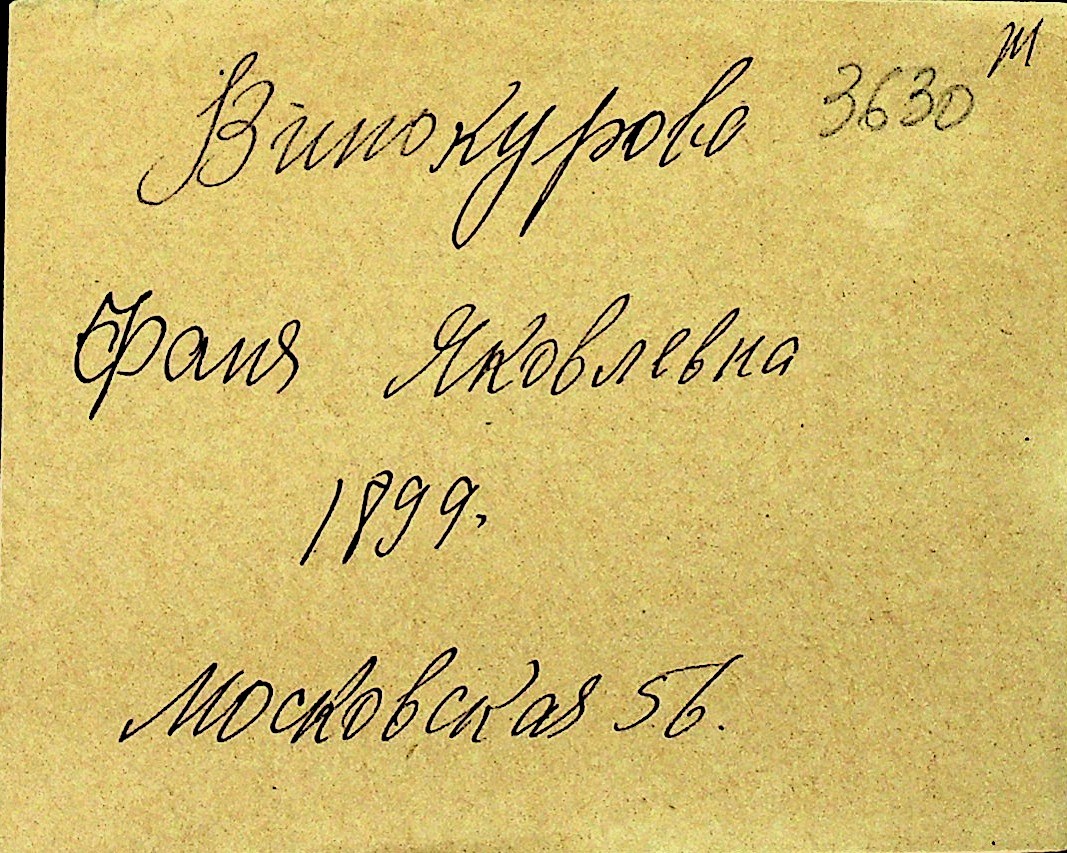 Винокурова 3630
Фаня Яковлевна
1899.
Московская 56.